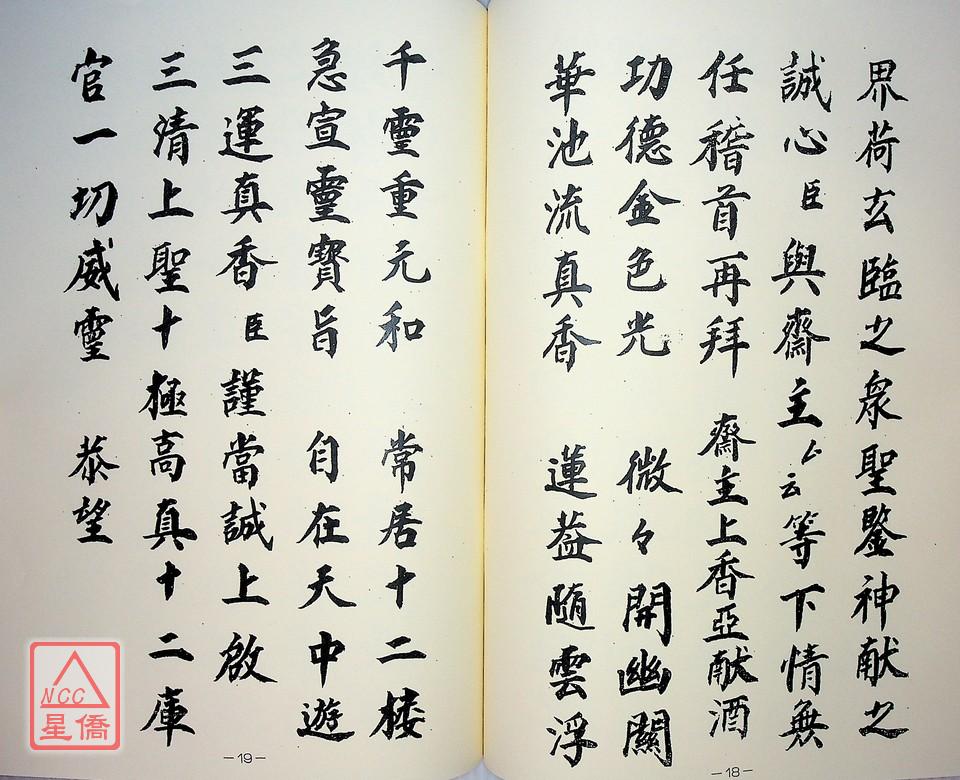 界荷玄臨之眾聖鑒神献之
誠心臣與齋主厶云等下情無
任稽首再拜 齋主上香亞献酒
功德金色光 微々開幽關
華池流真香 蓮葢隨雲浮
－18－
千靈重元和 常居十二楼
急宣靈寶旨 自在天中遊
三運真香臣謹當誠上啟
三清上聖十極高真十二庫
官一切威靈 恭望
－19－
NCC
星僑